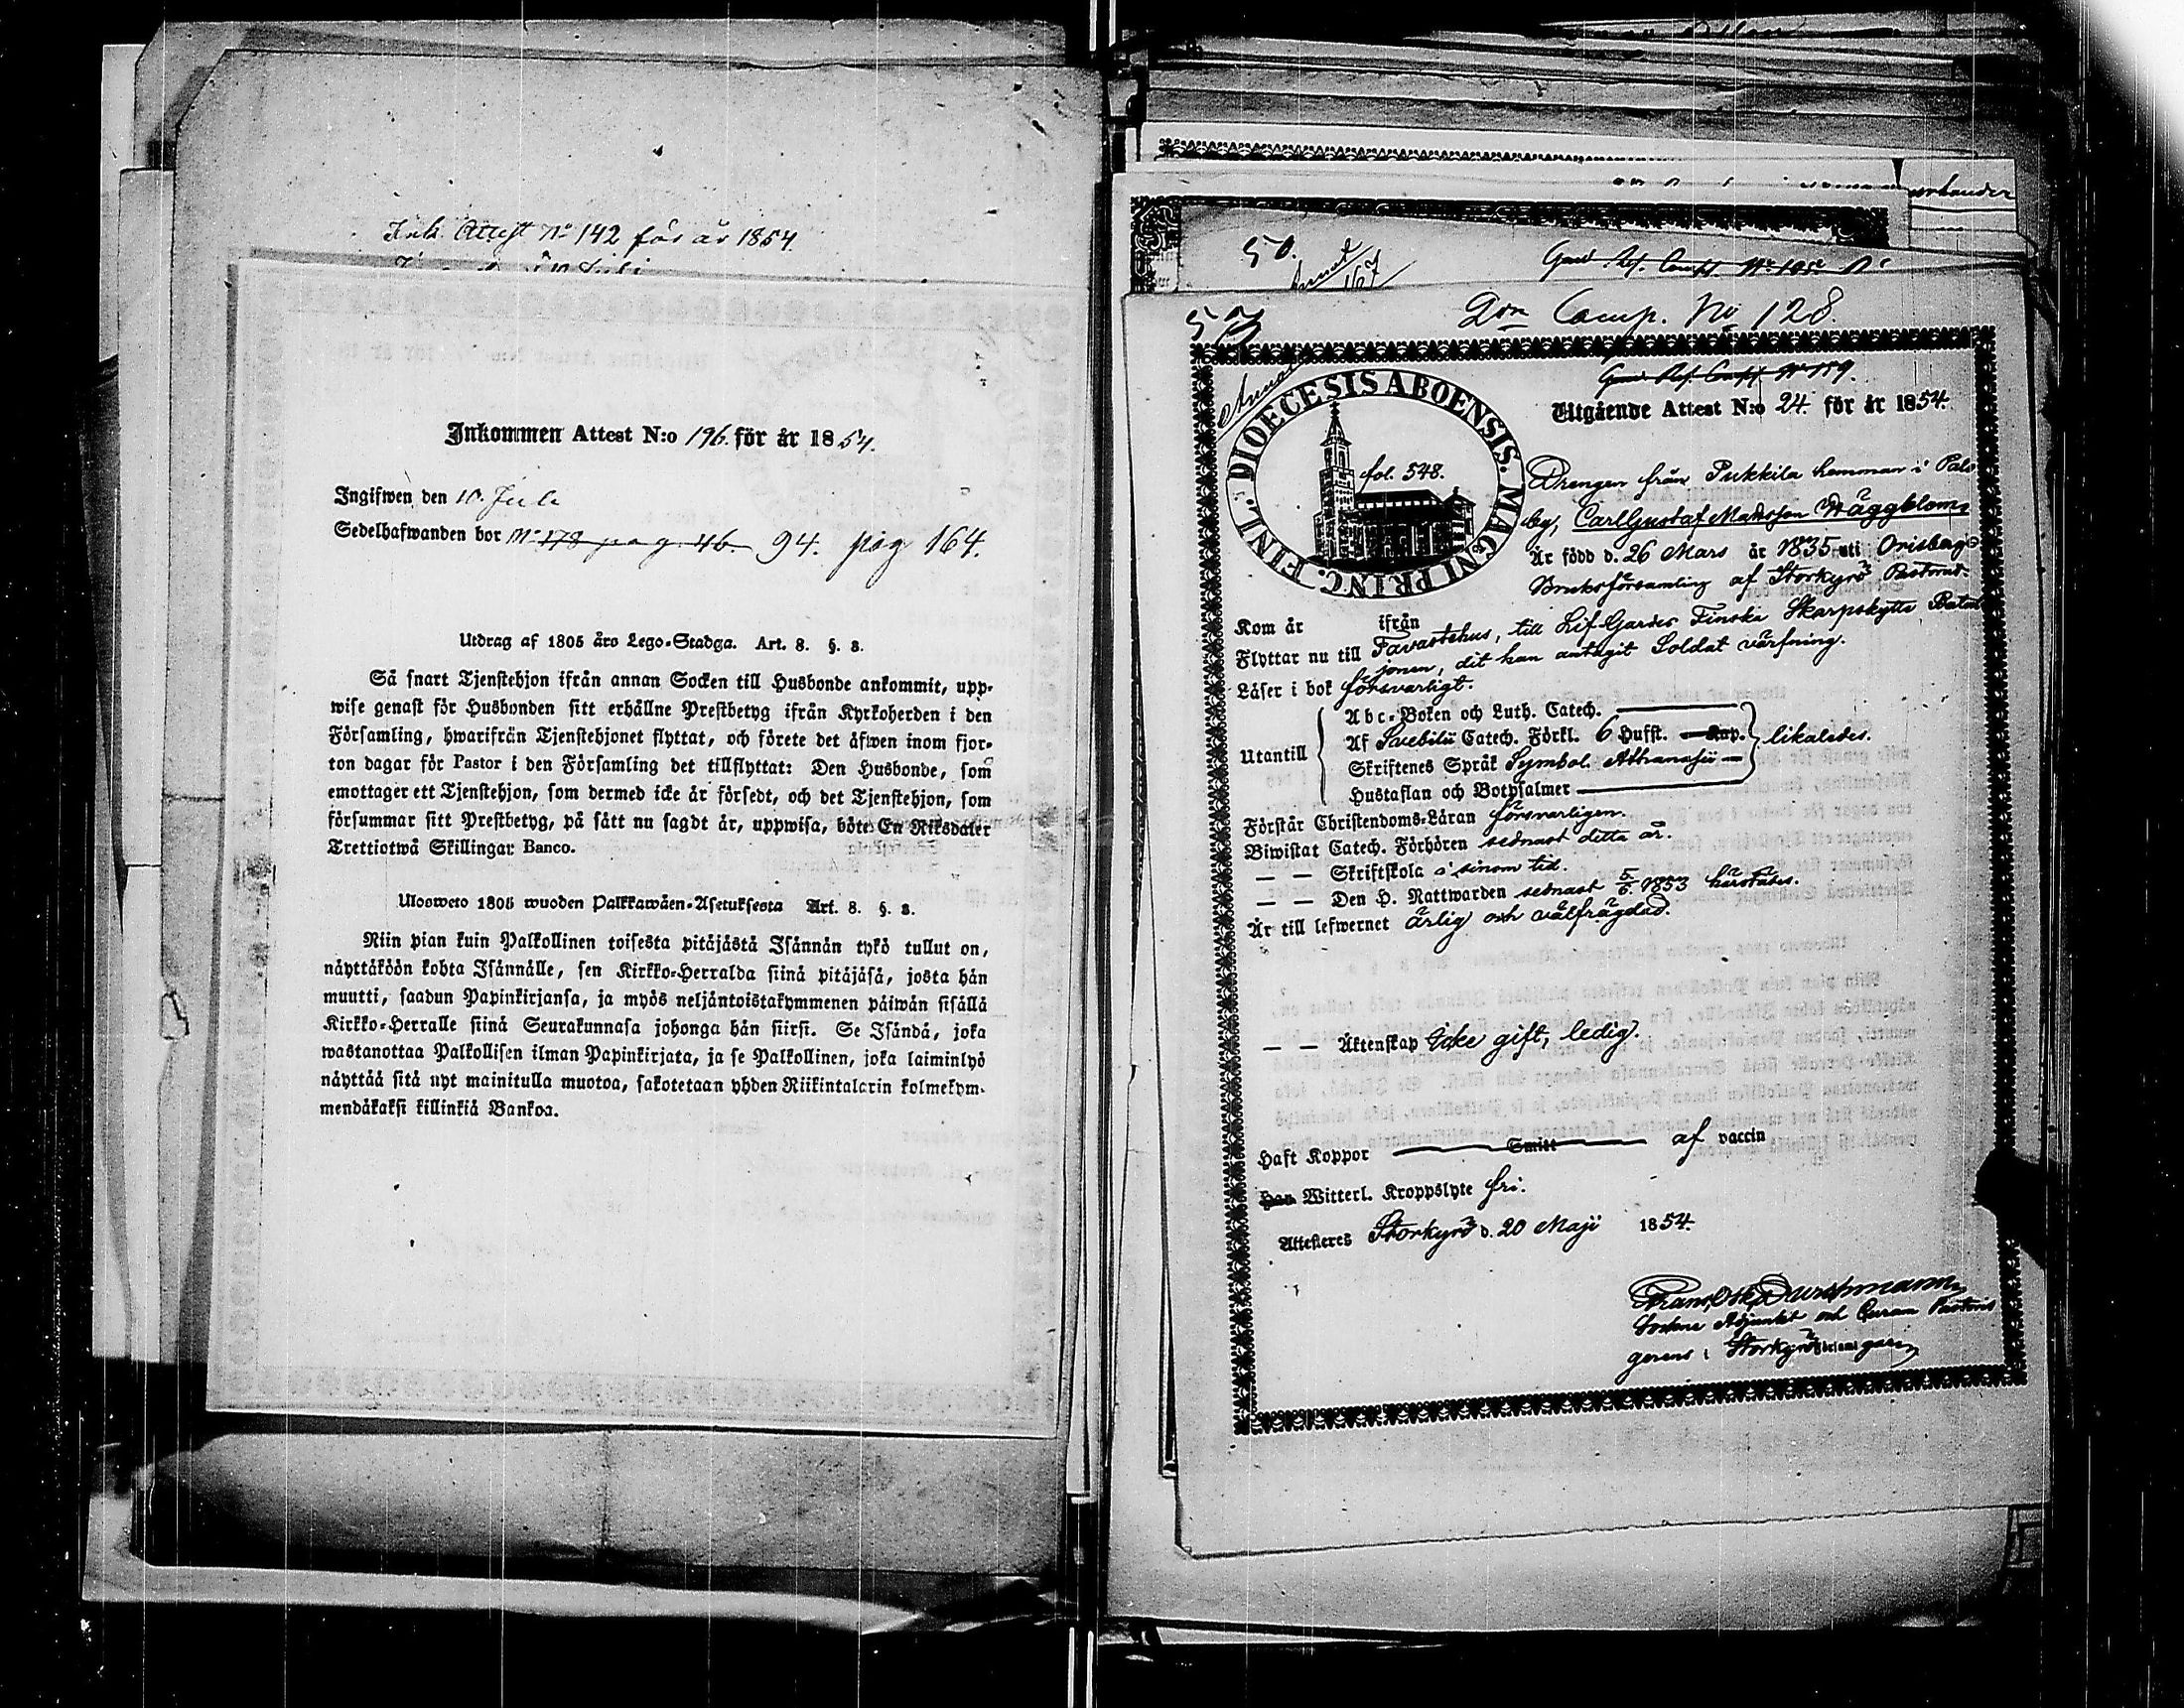 Ink. Attest No 142 för år 1854.
Inkommen Attest N:o 196. för år 1854.
Ingifwen den 10. Juli
Sedelhafwanden bor No 178 pag. 46. 94. pag 164.
Utdrag af 1805 års Lego-Stadga. Art. 8. §. 3.
Så snart Tjenstehjon ifrån annan Socken till Husbonde ankommit, upp-
wise genast för Husbonden sitt erhållne Prestbetyg ifrån Kyrkoherden i den
Församling, hwarifrån Tjenstehjonet flyttat, och förete det äfwen inom fjor-
ton dagar för Pastor i den Församling det tillflyttat: Den Husbonde, som
emottager ett Tjenstehjon, som dermed icke är försedt, och det Tjenstehjon, som
försummar sitt Prestbetyg, på sätt nu sagdt är, uppwisa, böte En Riksdaler
Trettiotwå Skillingar Banco.
Ulosweto 1805 wuoden Palkkawäen-Asetuksesta Art. 8. §. 3.
Niin pian kuin Palkollinen toisesta pitäjästä Isännän tykö tullut on,
näyttäköön kohta Isännälle, sen Kirkko-Herralda siinä pitäjäsä, josta hän
muutti, saadun Papinkirjansa, ja myös neljäntoistakymmenen päiwän sisällä
Kirkko-Herralle siinä Seurakunnasa johonga hän siirsi. Se Isändä, joka
wastanottaa Palkollisen ilman Papinkirjata, ja se Palkollinen, joka laiminlyö
näyttää sitä nyt mainitulla muotoa, sakotetaan yhden Riikintalarin kolmekym-
mendäkaksi killinkiä Bankoa.
50.
167
2dra Comp. No 128.
No 159.
DIOECESIS ABOENSIS. MAGNI PRINC. FINL.
fol. 548.
Utgående Attest N:o 24. för år 1854.
Drengen från Pukkila hemman i Palo
by, Carl Gustaf Mattsson Häggblom,
Är född d. 26 Mars år 1835 uti Orisberg
Bruksförsamling af Storkyrö Pastorat.
Kom år ifrån
Flyttar nu till Tavastehus, till Lif-Gardes Finska Skarpskytte Batal
jonen, dit han antagit Soldat värfning.
Läser i bok försvarligt.
Utantill
Abc-Boken och Luth. Catech.
Af Svebilii Catech. Förkl. 6 Hufst. Kap. likaledes.
Skriftenes Språk Symbol. Athanasii
Hustaflan och Botpsalmer
Förstår Christendoms-Läran försvarligen.
Biwistat Catech. Förhören sednast detta år.
— — Skriftskola i sinom tid.
— — Den H. Nattwarden sednast 5/6 1853 härstädes.
Är till lefwernet ärlig och välfrägdad.
— — Äktenskap Icke gift, ledig.
Haft Koppor Smitt af vaccin
Har Witterl. Kroppslyte fri.
Attesteres Storkyrö d. 20 Maji 1854.
Adjunkt och Curam Pastoris
gerens i Storkyrö